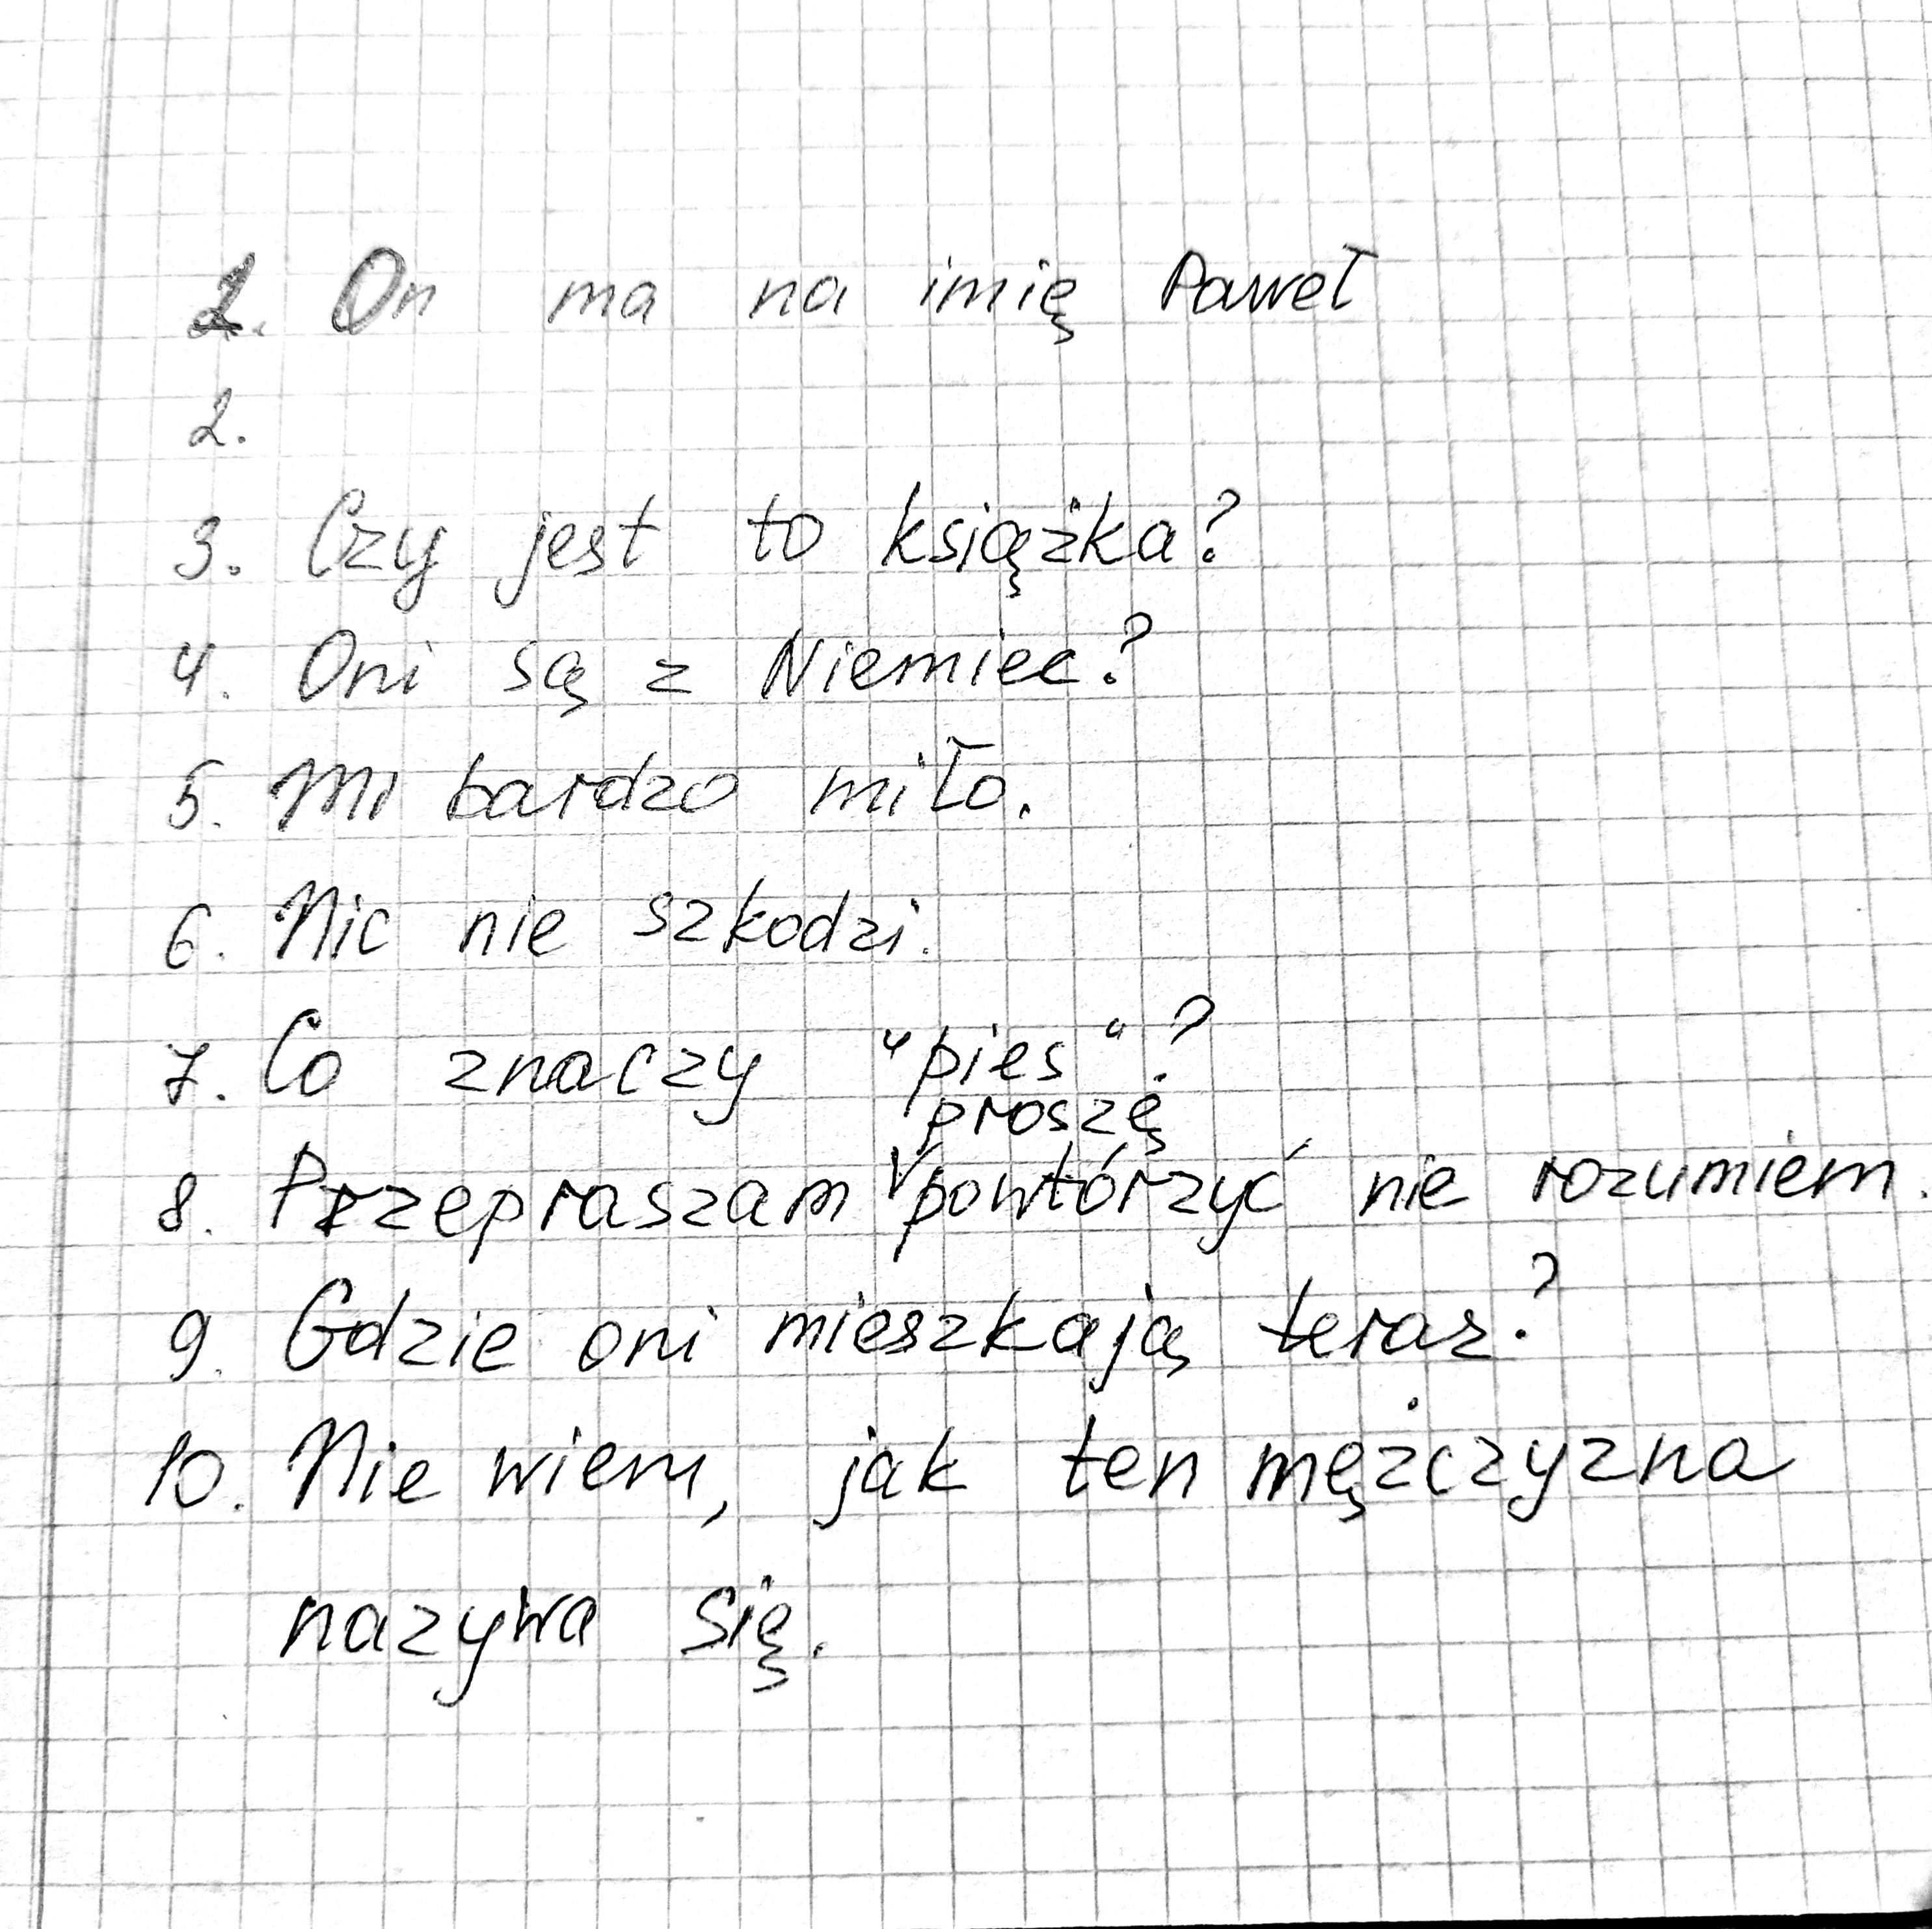 1. On ma na imię Paweł
2.
3. Czy jest to książka?
4. Oni są z Niemiec?
5. Mi bardzo miło.
6. Nic nie szkodzi.
7. Co znaczy "pies"?
proszę
8. Przepraszam powtórzyć nie rozumiem.
9. Gdzie oni mieszkają teraz?
10. Nie wiem, jak ten mężczyzna
nazywa się.